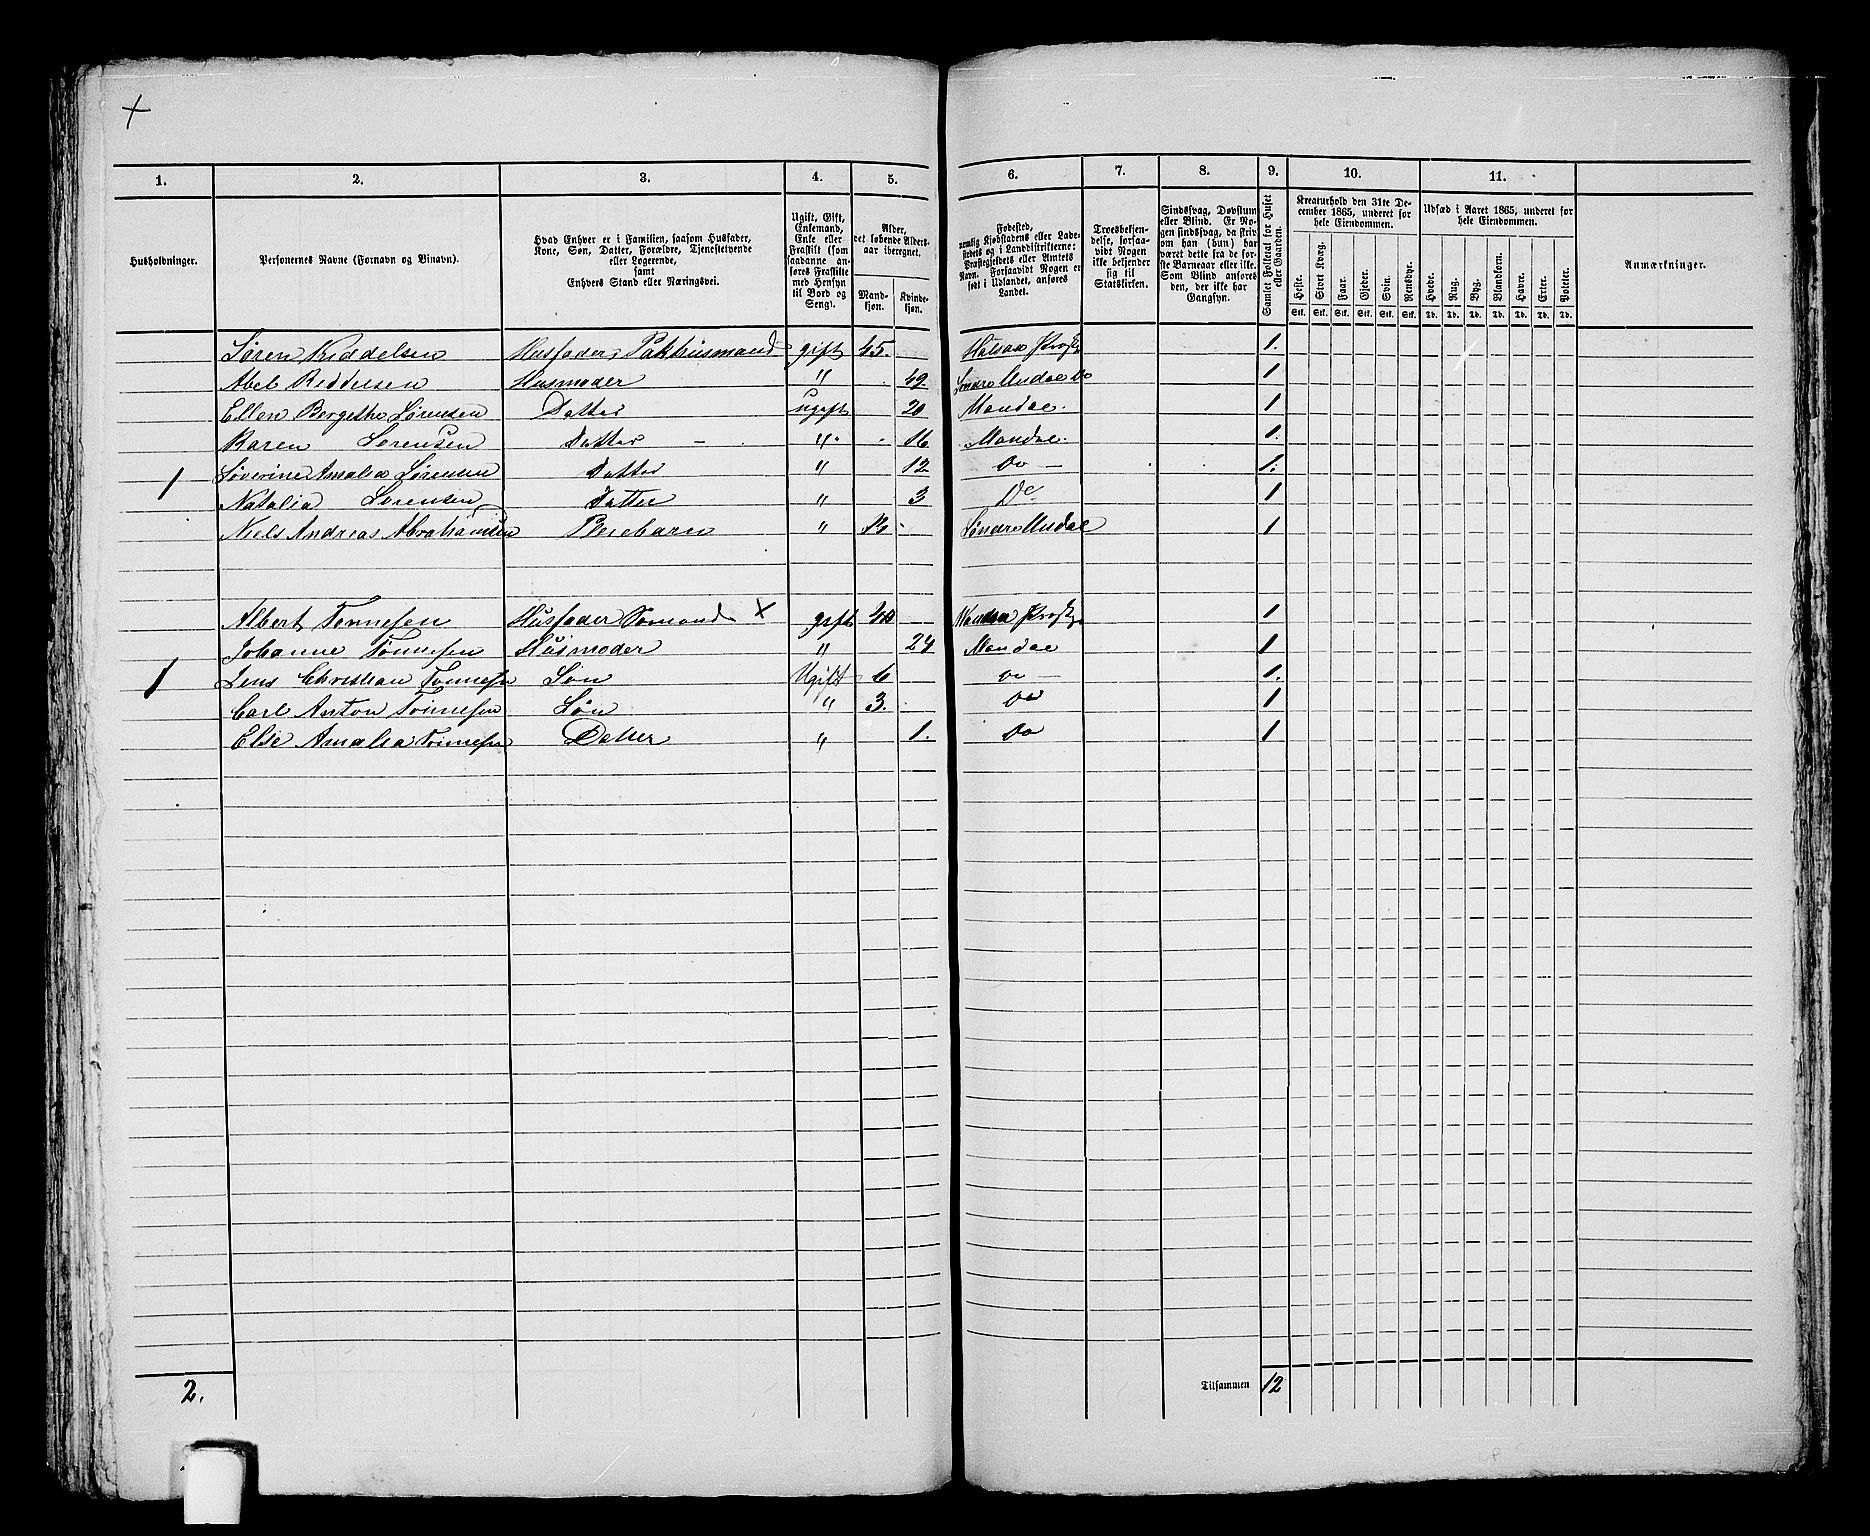 +
1. 2. 3. 4. 5. 6. 7. 8. 9. 10. 11.
Husholdninger.
Personernes Navne (Fornavn og Binavn).
Hvad Enhver er i Familien, saasom Husfader,
Kone, Søn, Datter, Forældre, Tjenestetyende
eller Logerende,
samt
Enhvers Stand eller Næringsvei.
Ugift, Gift,
Enkemand,
Enke eller
Fraskilt (som
saadanne an-
føres Fraskilte
med Hensyn
til Bord og
Seng).
Alder,
det løbende Alders-
aar iberegnet.
Mand-
kjøn.
Kvinde-
kjøn.
Fødested,
nemlig Kjøbstadens eller Lade-
stedets og i Landdistrikterne:
Præstegjeldets eller Amtets
Navn. Forsaavidt Nogen er
født i Udlandet, anføres
Landet.
Troesbekjen-
delse, forsaa-
vidt Nogen
ikke bekjender
sig til
Statskirken.
Sindssvag, Døvstum
eller Blind. Er No-
gen sindssvag, da skriv
om han (hun) har
været dette fra de før-
ste Barneaar eller ikke.
Som Blind anføres
den, der ikke har
Gangsyn.
Samlet Folketal for Huset
eller Gaarden.
Kreaturhold den 31te De-
cember 1865, underet for
hele Eiendommen.
Heste. Stort Kvæg. Faar. Gjeder. Svin. Rensdyr.
Stk. Stk. Stk. Stk. Stk. Stk.
Udsæd i Aaret 1865, underet for
hele Eiendommen.
Hvede. Rug. Byg. Blandkorn. Havre. Erter. Poteter.
Td. Td. Td. Td. Td. Td. Td.
Anmærkninger.
Søren Kiddelsen Husfader, Pakhusmand gift 45. 1.
Abel Kiddelsen Husmoder " 49 Søndre Undal Do 1
Ellen Bergethe Sørensen Datter ugift 20 Mandal. 1
Karen Sørensen Datter " 16 Mandal. 1.
1 Severine Amalia Sørensen Datter " 12 Do 1.
Natalia Sørensen Datter " 3 Do 1
Niels Andreas Abrahamsen Pleiebarn " 13 Søndre Undal 1
Albert Tønnesen Husfader Sømand × gift 1
Johanne Tønnesen Husmoder " 24 Mandal 1
1 Jens Christian Tønnesen Søn Ugift 6 Do 1.
Carl Anton Tønnesen Søn " 3. Do 1
Else Amalia Tønnesen Datter " 1. Do 1
2.
Tilsammen 12